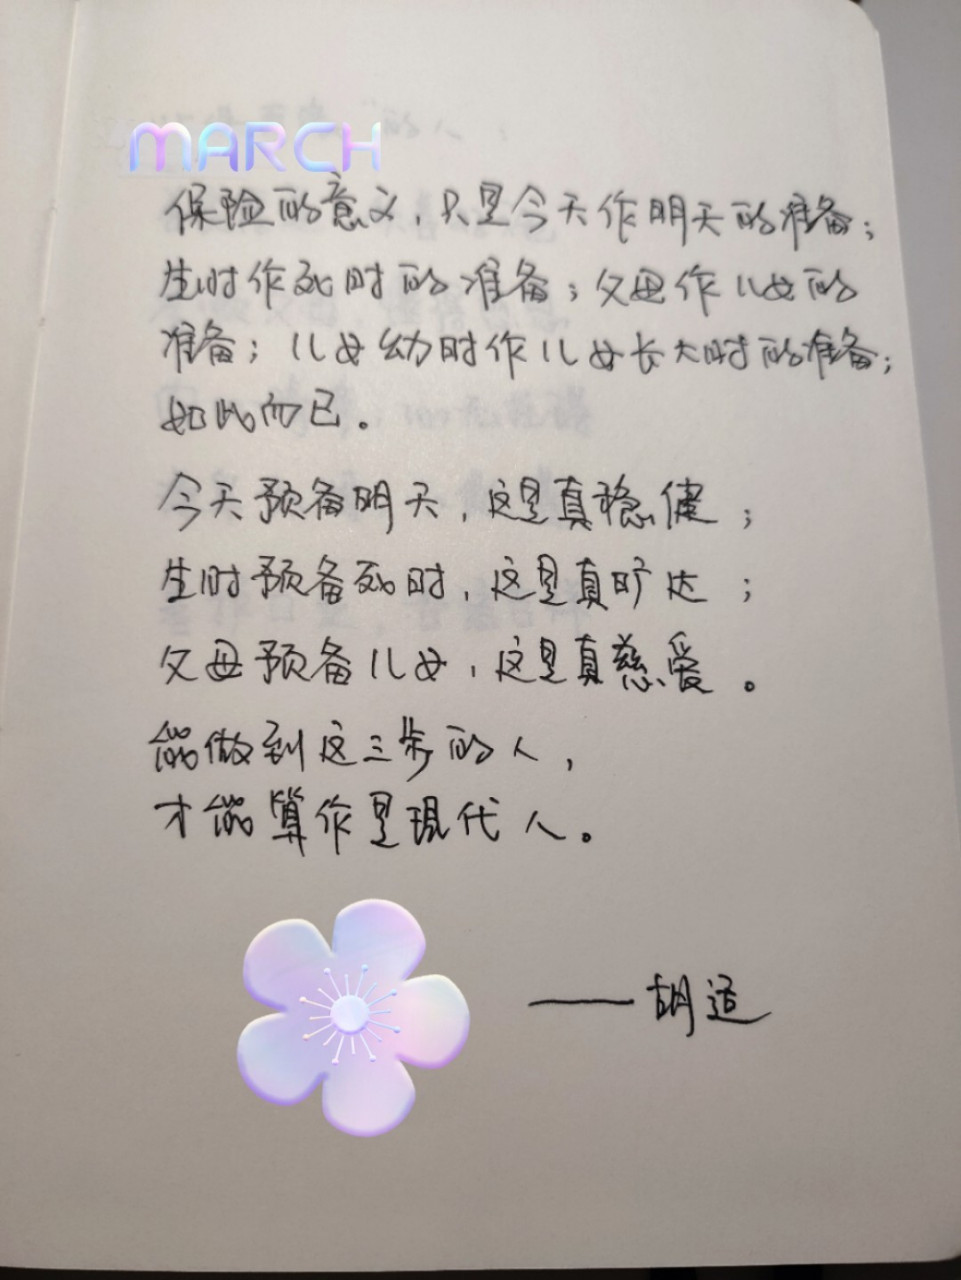 MARCH
保险的意义，只是今天作明天的准备；
生时作死时的准备；父母作儿女的
准备；儿女幼时作儿女长大时的准备；
如此而已。
今天预备明天，这是真稳健；
生时预备死时，这是真旷达；
父母预备儿女，这是真慈爱。
能做到这三步的人，
才能算作是现代人。
——胡适